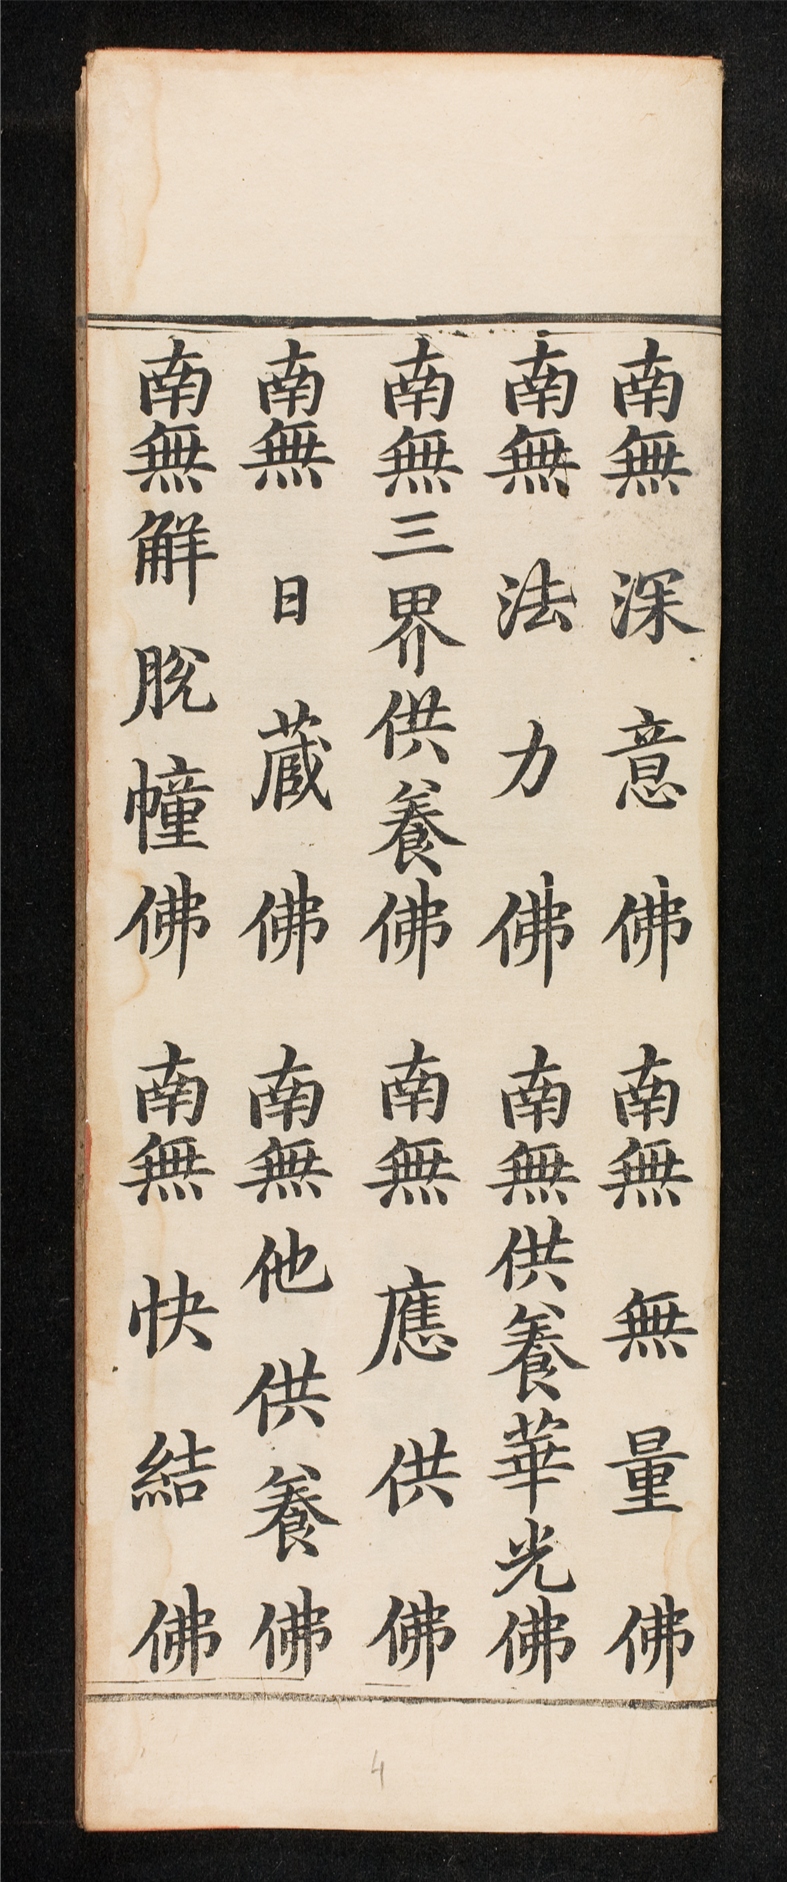 南無深意佛　南無無量佛
南無法力佛　南無供養華光佛
南無三界供養佛　南無應供佛
南無日蔵佛　南無他供養佛
南無解脫幢佛　南無快結佛
4